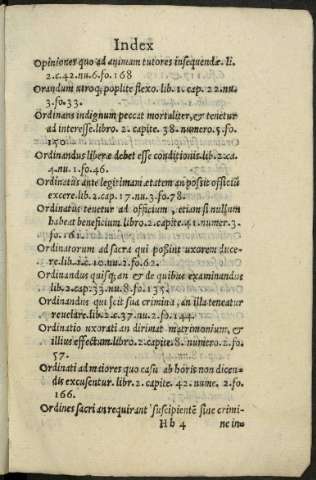 Index
Opiniones quo ad animam tutores insequendæ. li.
2.c.42.nu.6.fo.168
Orandum utroq; poplite flexo. lib. 1. cap. 22.nu.
3.fo.33.
Ordinans indignum peccat mortaliter, & tenetur
ad interesse.libro. 2. capite. 38. numero.5.fo.
150.
Ordinandus liberæ debet esse conditionis.lib.2.ca.
4.nu.1.fo.46.
Ordinatus ante legitimam ætatem an possit officiū
excere.lib.2.cap.17.nu.3.fo.78.
Ordinatus tenetur ad officium, etiam si nullum
habeat beneficium Libro.2.capite.41.numer.3.
fo.161.
Ordinatorum ad sacra qui possint uxorem duce-
re.lib.2.c.10.nu.2.fo.62.
Ordinandus quisq; an & de quibus examinandus
lib.2.cap.33.nu.8.fo.135.
Ordinandus qui scit sua crimina, an illa teneatur
reuelare.lib.2.c.37.nu.2.fo.144.
Ordinatio uxorati an dirimat matrimonium, &
illius effectum.libro.2.capite.8.numero.2.fo.
57.
Ordinati ad maiores quo casu ab horis non dicen-
dis excusentur.libr.2.capite.42.nume.2.fo.
166.
Ordines sacri an requirant suscipientē sine crimi-
Hh 4 ne in-